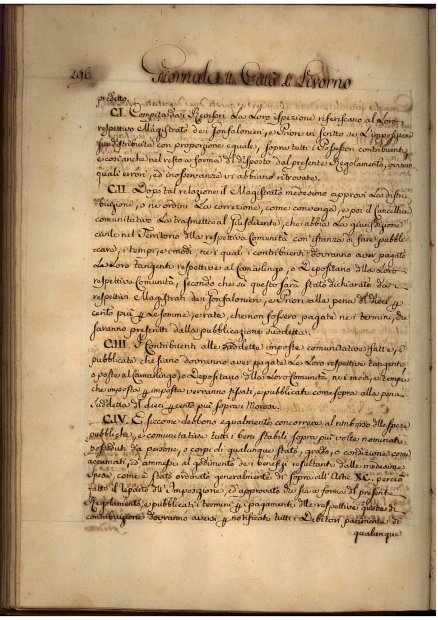 296 Giornale della Città di Livorno
predetto.
CI. Compita da i Revisori la loro ispezione riferiscano al loro
respettivo Magistrato dei Gonfalonieri, e Priori in scritto se l'imposizione
sia distribuita con proporzione eguale, sopra tutti i Possessori contribuenti,
e così anche nel resto a forma del disposto dal presente Regolamento, ovvero
quali errori, ed inosservanze vi abbiano ritrovate.
CII. Dopo tal relazione il Magistrato medesimo approvi la distri-
buzione, o ne ordini la correzione, come convenga, e poi il Cancelliere
comunitativo la trasmetta al Giusdicente, che abbia la giurisdizione
civile nel Territorio della respettiva Comunità con istanza di fare pubbli-
care, i tempi, e modi, ne' quali i contribuenti dovranno aver pagato
le loro tangenti respettive al Camarlingo, o Depositario della loro
respettiva Comunità, secondo che su questo sarà stato dichiarato da i
respettivi Magistrati dei Gonfalonieri, e Priori alla pena del dieci p
cento più p le somme, e rate, che non fossero pagate ne i termini, che
saranno prescritti dalla pubblicazione suddetta.
CIII. I Contribuenti alle suddette imposte comunitative fatte, e
pubblicate che siano dovranno aver pagate le loro respettive tangenti
o poste al Camarlingo, o Depositario della loro Comunità ne i modi, e tempi
che imposta p imposta verranno fissati, e pubblicati come sopra alla pena
suddetta del dieci p cento più sopra i Morosi.
CIV. E siccome debbono egualmente concorrere al rimborso delle spese
pubbliche, e comunitative tutti i beni stabili sopra più volte nominati
posseduti da persone, o corpi di qualunque stato, grado, o condizione come
accennati, ed ammessi al godimento dei benefizi resultanti dalle medesime
spese, come è stato ordinato generalmente di sopra all'Arte XC. perciò
fatto il reparto dell'Imposizione, ed approvato che sia a forma del presente
Regolamento, e pubblicati i termini p i pagamenti delle respettive quote di
contribuzione dovranno aversi p notificati tutti i Debitori parimente di
qualunque